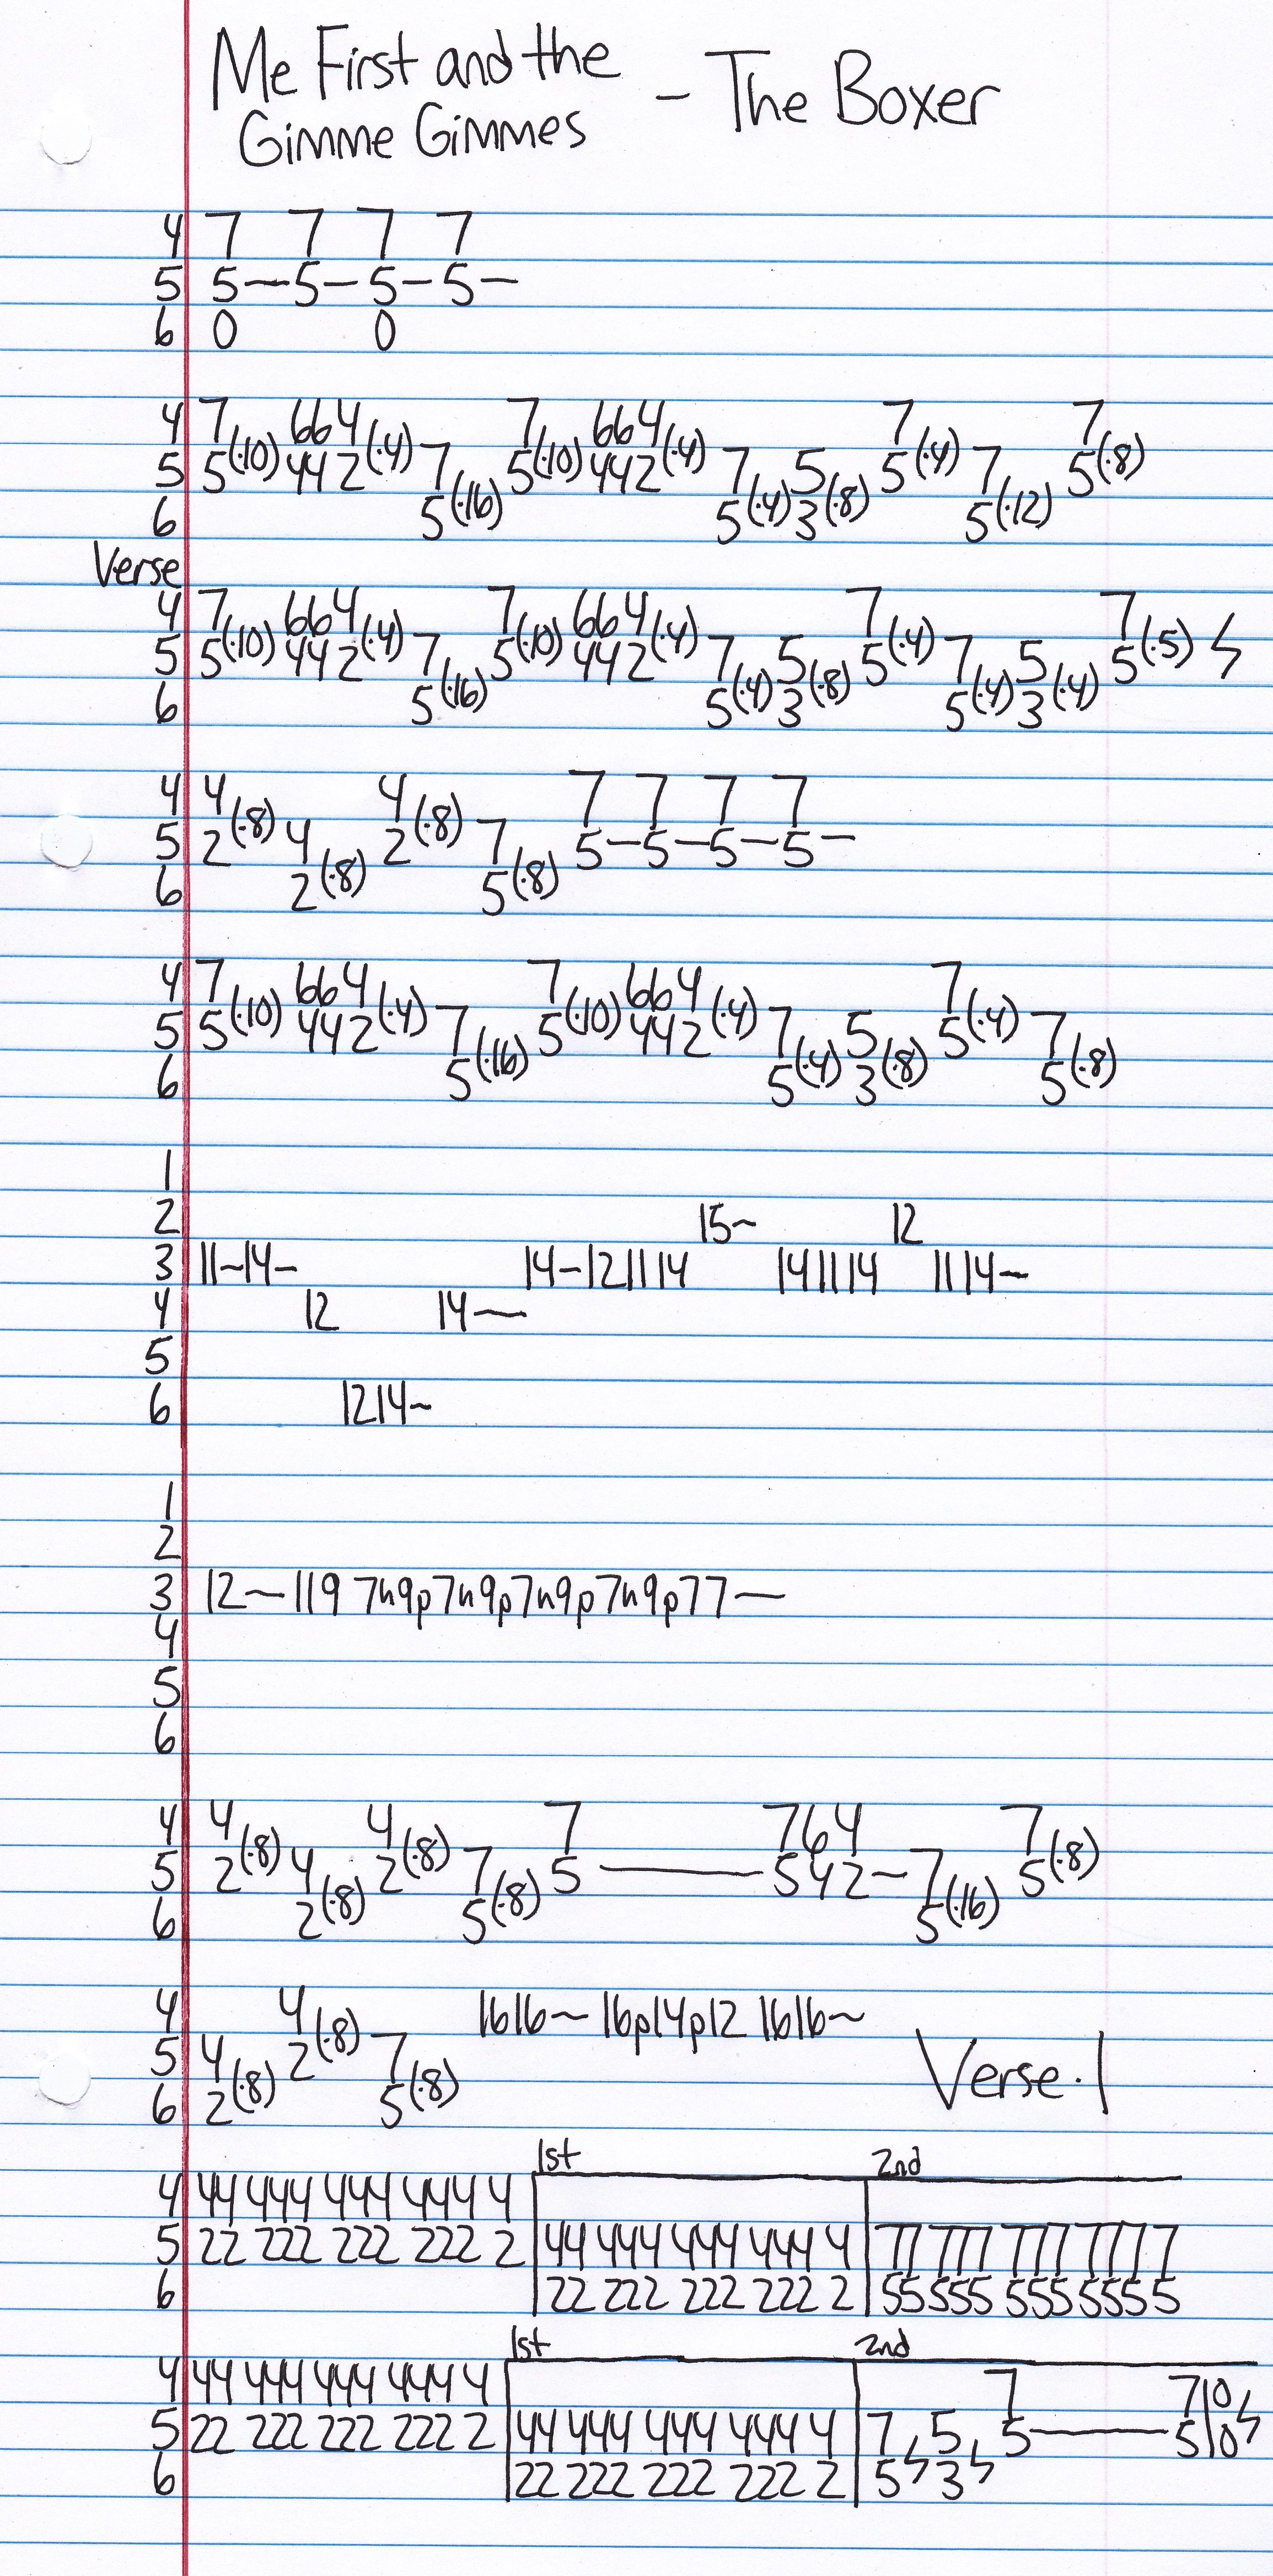 Me First and the
Gimme Gimmes - The Boxer
4 7 7 7 7
5 5-5-5-5-
6 0 0
4 7 664 7 664 7 7
5 5(·10) 442(·4) 7 5(·10) 442(·4) 7 5 5(·4) 7 5(·8)
6 5(·16) 5(·4) 3(·8) 5(·12)
Verse
4 7 664 7 664 7 7
5 5(·10) 442(·4) 7 5(·10) 442(·4) 7 5 5(·4) 7 5 5(·5)
6 5(·16) 5(·4) 3(·8) 5(·4) 3(·4)
4 4 4 7 7 7 7
5 2(·8) 4 2(·8) 7 5-5-5-5-
6 2(·8) 5(·8)
4 7 664 7 664 7
5 5(·10) 442(·4) 7 5(·10) 442(·4) 7 5 5(·4) 7
6 5(·16) 5(·4) 3(·8) 5(·8)
1
2 15~ 12
3 11~14- 14-121114 141114 1114~
4 12 14~
5
6 1214~
1
2
3 12~119 7h9p7h9p7h9p7h9p77—
4
5
6
4 4 4 7 764 7
5 2(·8) 4 2(·8) 7 5——542-7 5(·8)
6 2(·8) 5(·8) 5(·16)
4 4 1616~ 16p14p12 1616~
5 4 2(·8) 7
6 2(·8) 5(·8)
Verse·1
1st 2nd
4 44 444 444 444 4
5 22 222 222 222 2 44 444 444 444 4 77 777 777 777 7
6 22 222 222 222 2 55 555 555 555 5
1st 2nd
4 44 444 444 444 4 7 7 10
5 22 222 222 222 2 44 444 444 444 4 7 5 5——5 10
6 22 222 222 222 2 5 3